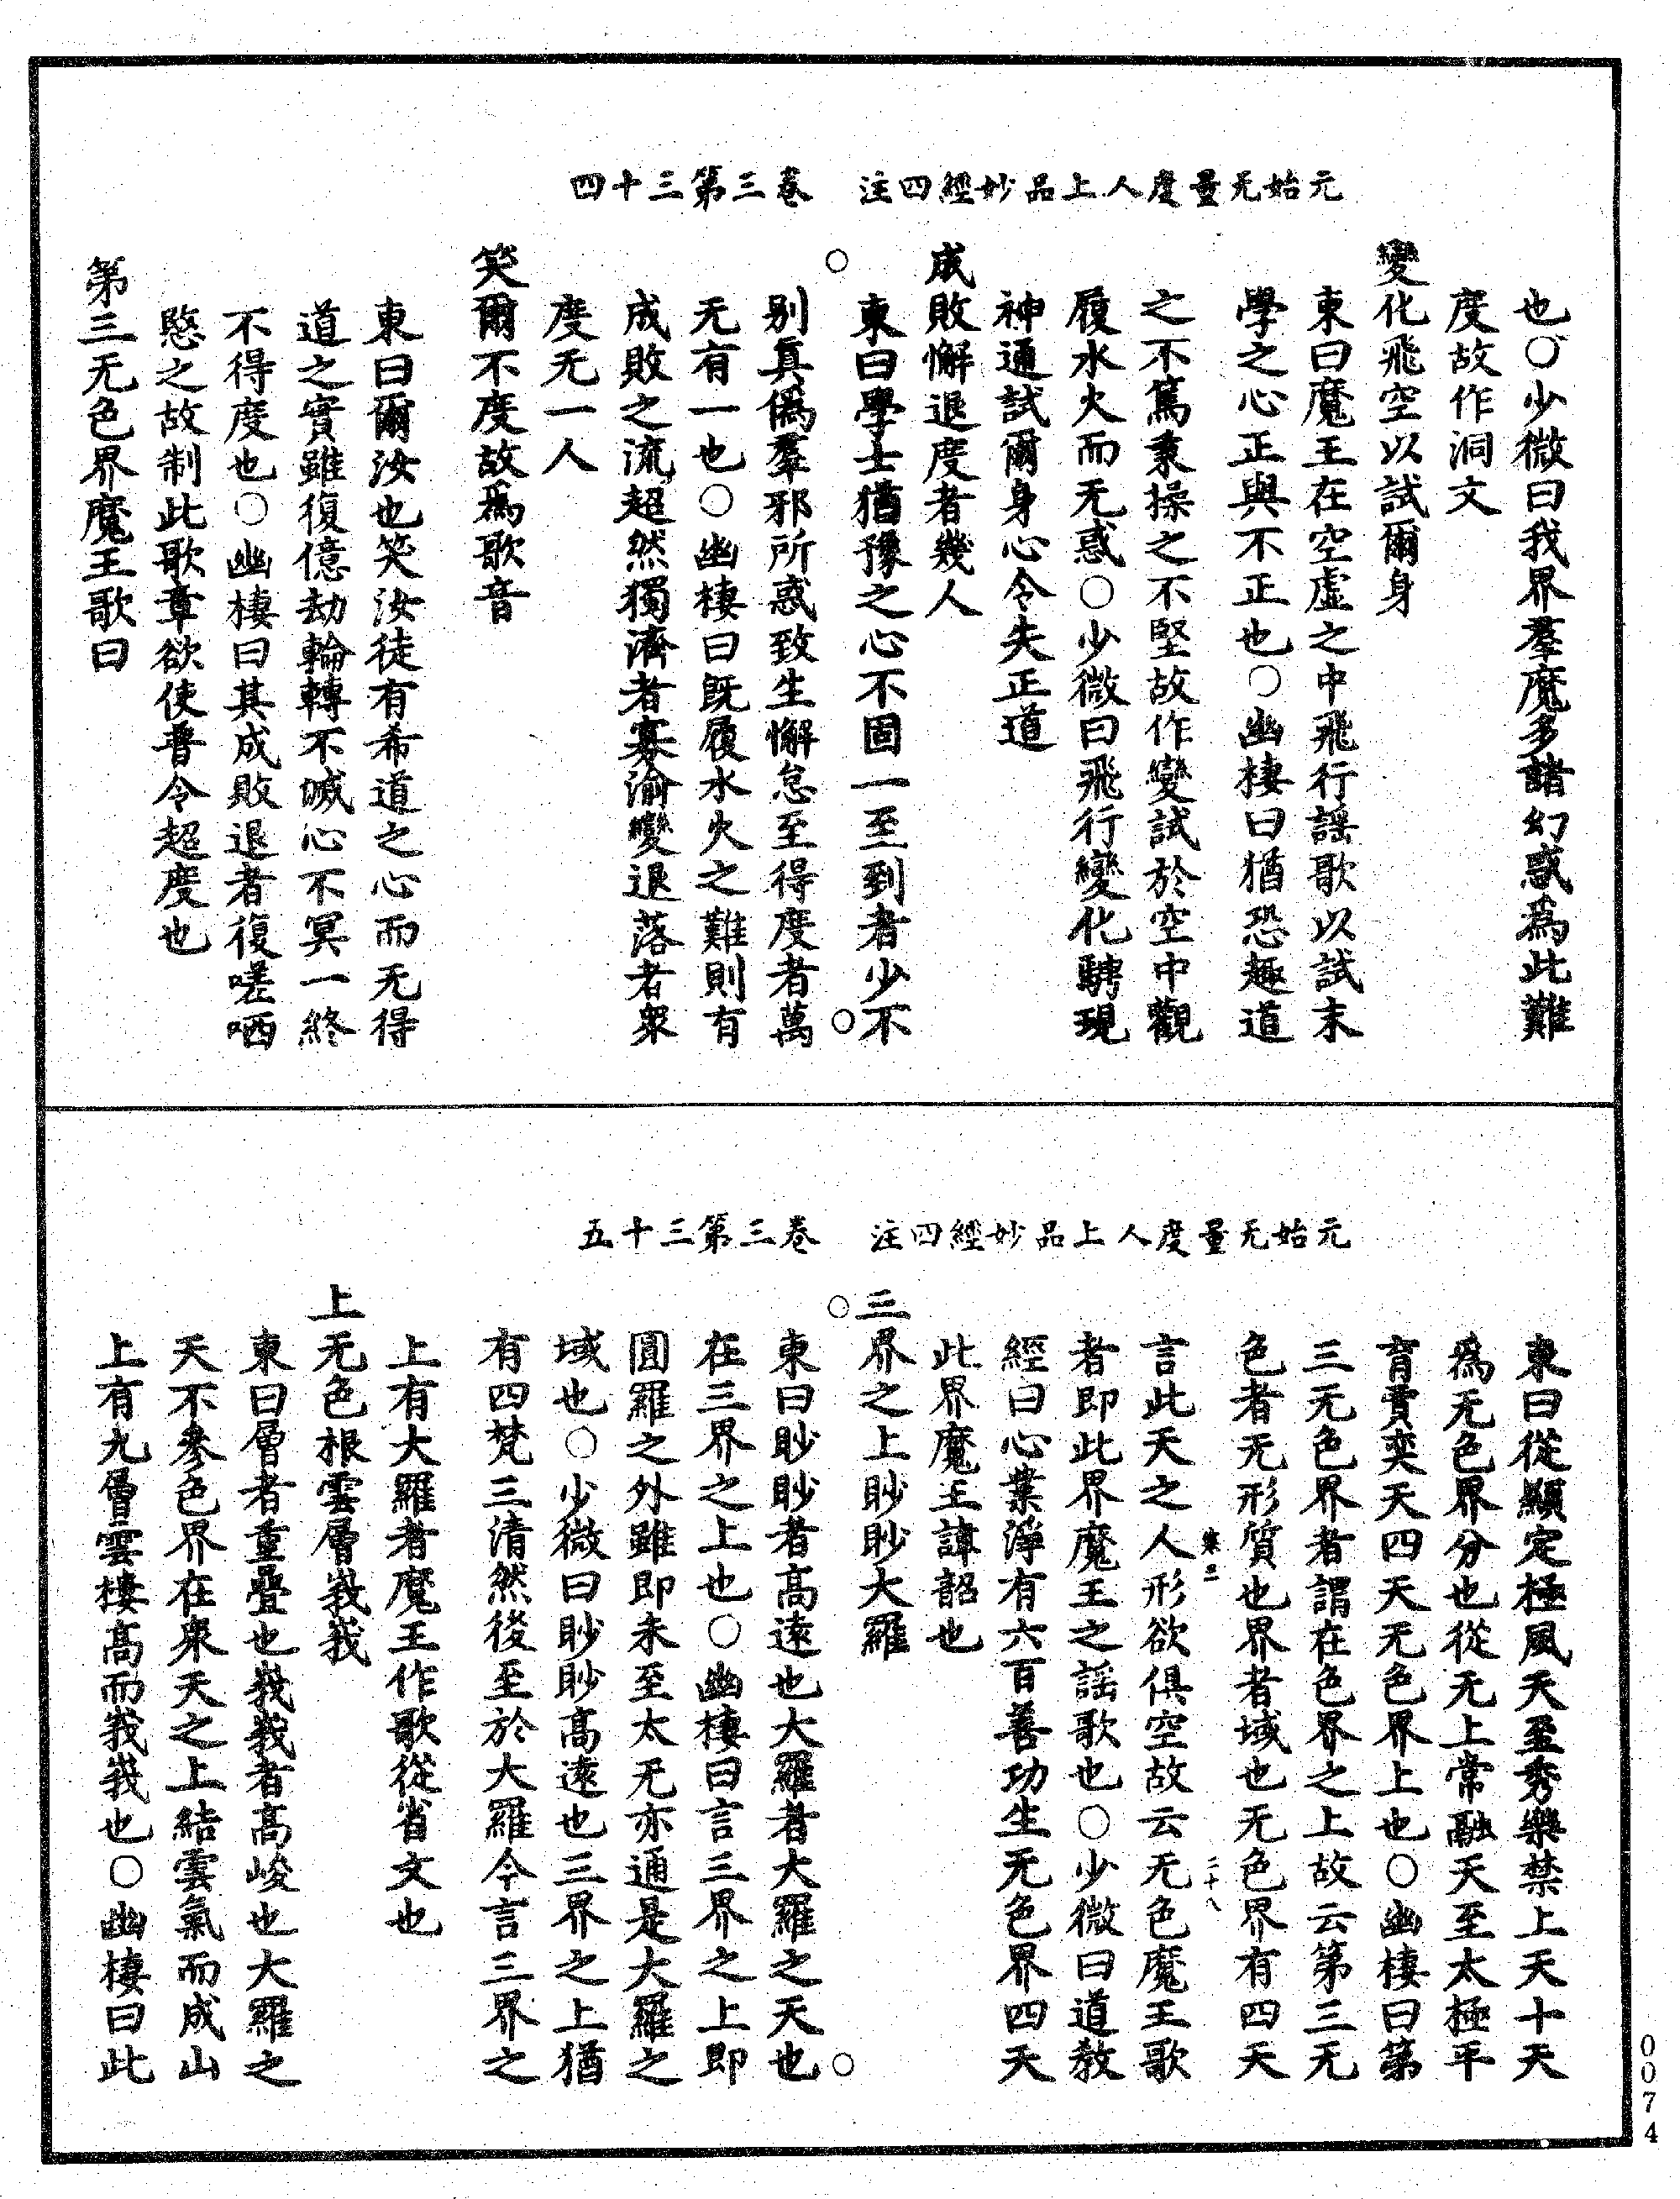 元始无量度人上品妙經四注　卷三第三十四
也○少微曰我界羣魔多諸幻惑為此難
度故作洞文
變化飛空以試爾身
東曰魔王在空虛之中飛行謡歌以試末
學之心正與不正也○幽棲曰猶恐趣道
之不篤秉操之不堅故作變試於空中觀
履水火而无惑○少微曰飛行變化騁現
神通試爾身心令失正道
成敗懈退度者幾人
東曰學士猶豫之心不固一至到者少不
别真偽羣邪所惑致生懈怠至得度者萬
无有一也○幽棲曰既履水火之難則有
成敗之流超然獨濟者寡渝變退落者衆
度无一人
笑爾不度故爲歌音
東曰爾汝也笑汝徒有希道之心而无得
道之實雖復億劫輪轉不緘心不冥一終
不得度也○幽棲曰其成敗退者復嗟哂
愍之故制此歌章欲使普令超度也
第三无色界魔王歌曰
元始无量度人上品妙經四注　卷三第三十五
東曰從顯定極風天至秀樂禁上天十天
為无色界分也從无上常融天至太極平
育賈奕天四天无色界上也○幽棲曰第
三无色界者謂在色界之上故云第三无
色者无形質也界者域也无色界有四天
卷三　二十八
言此天之人形欲俱空故云无色魔王歌
者即此界魔王之謡歌也○少微曰道教
經曰心業淨有六百善功生无色界四天
此界魔王諱韶也
三界之上眇眇大羅
東曰眇眇者高遠也大羅者大羅之天也
在三界之上也○幽棲曰言三界之上即
圓羅之外雖即未至太无亦通是大羅之
域也○少微曰眇眇高遠也三界之上猶
有四梵三清然後至於大羅今言三界之
上有大羅者魔王作歌從省文也
上无色根雲層峩峩
東曰層者重疊也峩峩者高峻也大羅之
天不參色界在衆天之上結雲氣而成山
上有九層雲棲高而峩峩也○幽棲曰此
0074